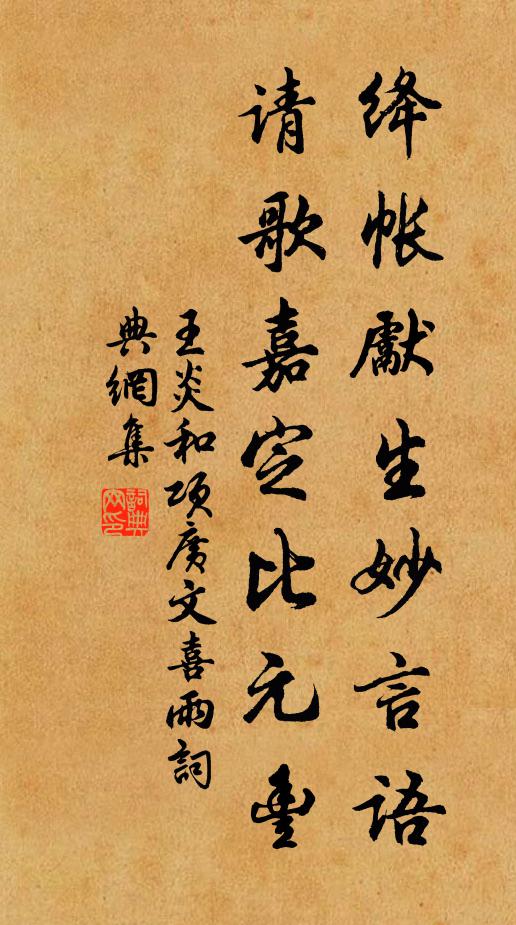 绛帐獻生妙言语
请歌嘉定比元豐
王炎和项廣文喜雨詞
典網集
詞典
网印